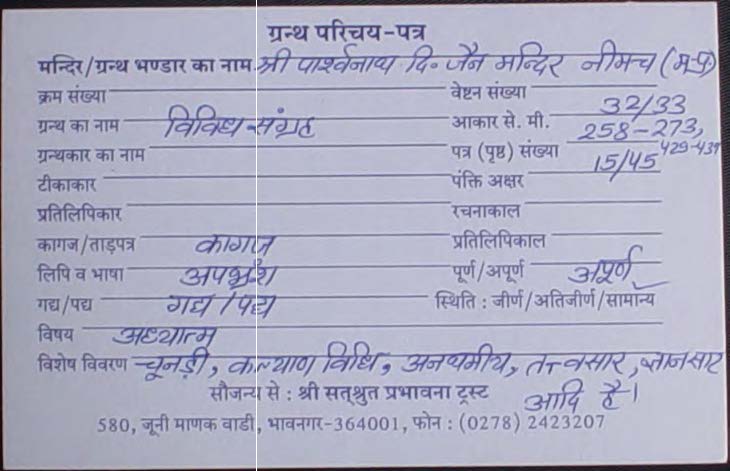 ग्रन्थ परिचय-पत्र
मन्दिर/ग्रन्थ भण्डार का नाम श्री पार्श्वनाथ दि॰ जैन मन्दिर नीमच (म॰प्र॰)
क्रम संख्या
वेष्टन संख्या
ग्रन्थ का नाम विविध संग्रह
आकार से. मी. 32/33
ग्रन्थकार का नाम
पत्र (पृष्ठ) संख्या 258-273, 429-439
टीकाकार
पंक्ति अक्षर 15/45
प्रतिलिपिकार
रचनाकाल
कागज/ताड़पत्र कागज
प्रतिलिपिकाल
लिपि व भाषा अपभ्रंश
पूर्ण/अपूर्ण अपूर्ण
गद्य/पद्य गद्य/पद्य
स्थिति : जीर्ण/अतिजीर्ण/सामान्य
विषय अध्यात्म
विशेष विवरण चूनड़ी, कल्याण विधि, अनथमीय, तत्त्वसार, ज्ञानसार
आदि है।
सौजन्य से : श्री सत्श्रुत प्रभावना ट्रस्ट
580, जूनी माणक वाडी, भावनगर-364001, फोन : (0278) 2423207